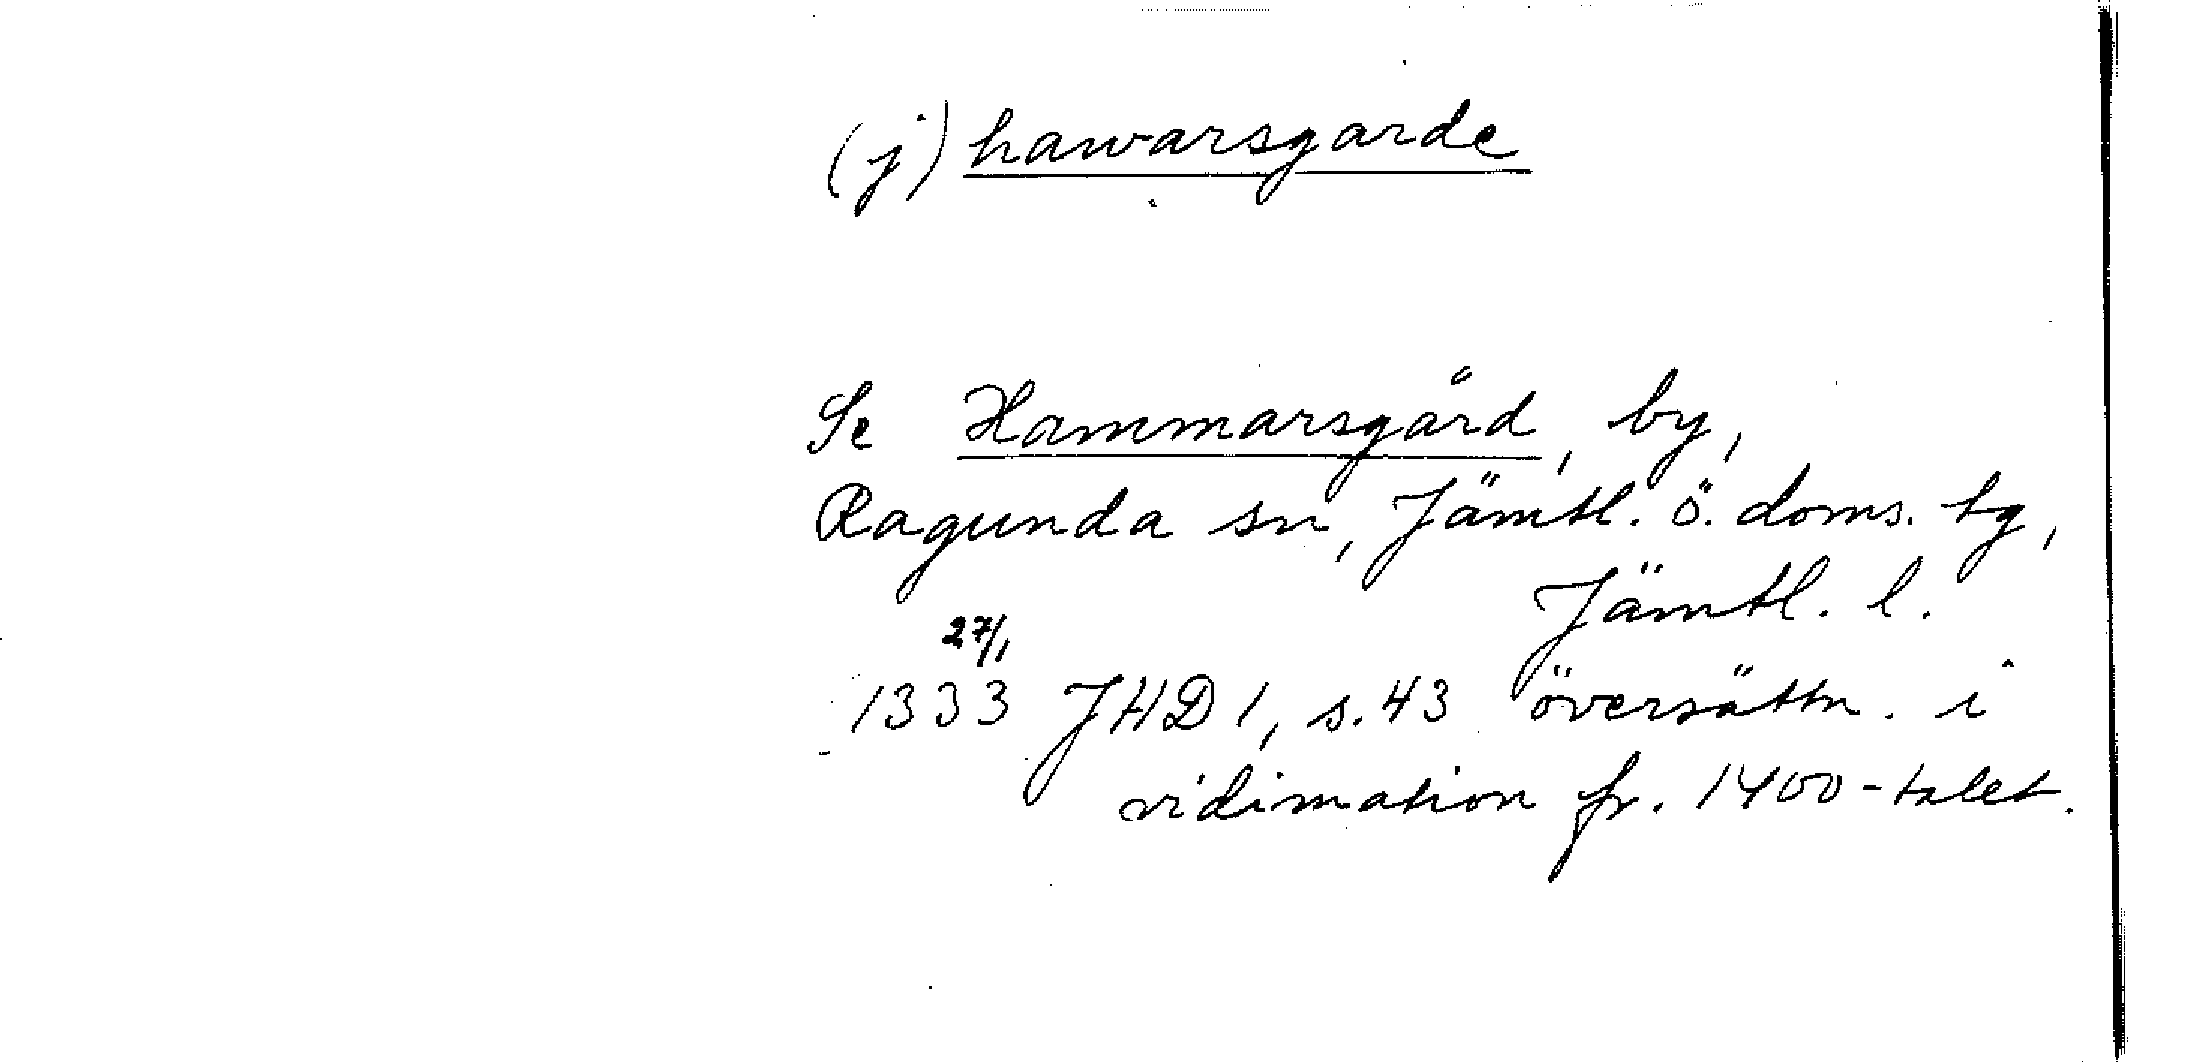 (j) hawarsgarde
Se Hammarsgård, by,
Ragunda sn, Jämtl. ö. doms. tg,
Jämtl. l.
27/1
1333 JHD 1, s. 43 översättn. i
vidimation fr. 1400-talet.